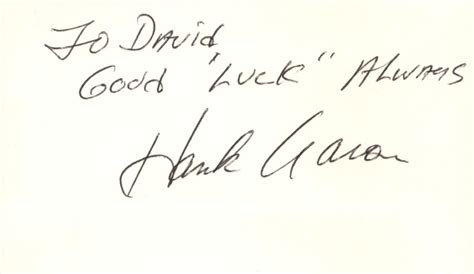 To David
Good "Luck" Always
Hank Aaron